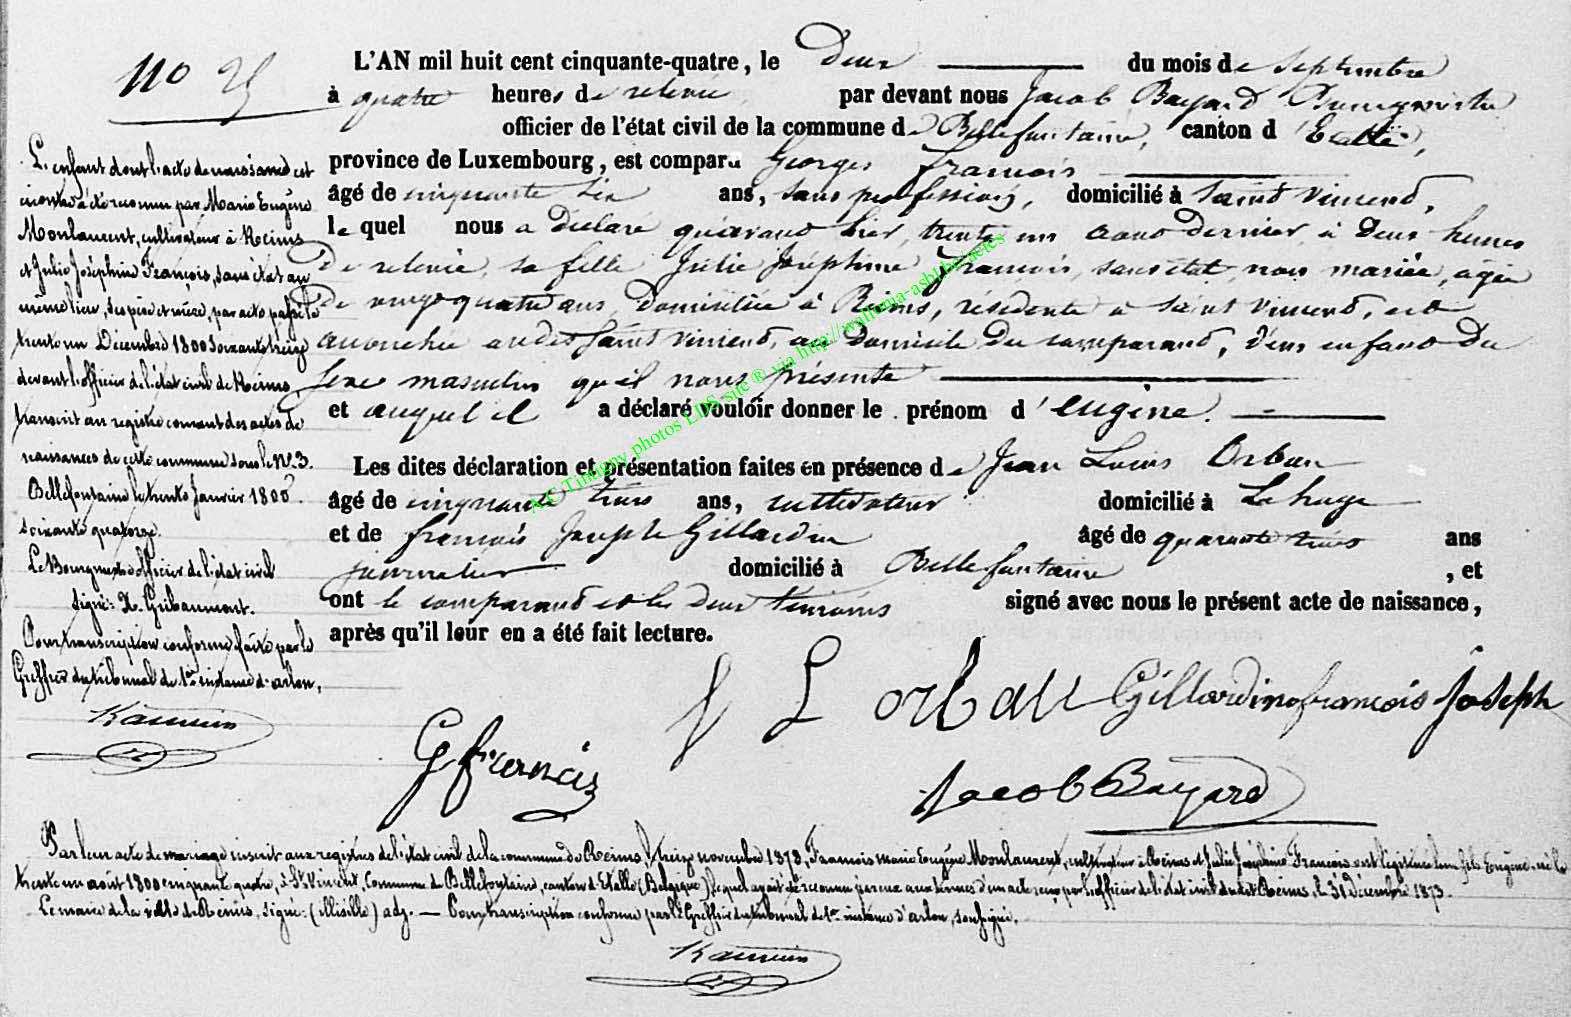 No 25
L'AN mil huit cent cinquante-quatre, le Deux du mois de Septembre
à quatre heures de relevée par devant nous Jacob Bayard Bourgmestre
officier de l'état civil de la commune de Bellefontaine, canton d'Etalle,
province de Luxembourg, est comparu Georges françois
âgé de cinquante six ans, sans profession, domicilié à Saint Vincent,
lequel nous a déclaré qu'avant hier, trente un aout dernier, à deux heures
de relevée, sa fille Julie Joséphine François, sans état, non mariée, agée
de vingt quatre ans, domiciliée à Reims, résidente à Saint Vincent, est
accouchée audit Saint Vincent, au domicile du comparant, d'un enfant du
sexe masculin qu'il nous présente
et auquel il a déclaré vouloir donner le prénom d'eugène.
Les dites déclaration et présentation faites en présence de Jean Louis Orban
âgé de cinquante trois ans, cultivateur domicilié à Lahage
et de françois Joseph Gillardin âgé de quarante trois ans
journalier domicilié à Bellefontaine, et
ont le comparant et les deux témoins signé avec nous le présent acte de naissance,
après qu'il leur en a été fait lecture.
L orban Gillardin françois Joseph
G francois
Jacob Bayard
L'enfant dont l'acte de naissance est
ci contre a été reconnu par Marie Eugène
Monlaurent, cultivateur à Reims
et Julie Joséphine François, sans état au
même lieu, ses père et mère, par acte passé le
trente un Décembre 1800 soixante treize
devant l'officier de l'état civil de Reims
transcrit au registre courant des actes de
naissances de cette commune sous le No. 3.
Bellefontaine le trente Janvier 1800
soixante quatorze.
Le Bourgmestre officier de l'état civil
signé: X. Gribaumont.
Pour transcription conforme faite par le
Greffier du tribunal de 1re instance d'arlon,
Par leur acte de mariage inscrit aux registres de l'état civil de la commune de Reims, le treize novembre 1878, François Marie Eugène Monlaurent, cultivateur à Reims et Julie Joséphine François ont légitimé leur fils Eugène né le
trente un août 1800 cinquante quatre, à St. Vincent, Commune de Bellefontaine, canton d'Etalle (Belgique) lequel avait été reconnu par eux aux termes d'un acte reçu par l'officier de l'état civil dudit Reims, le 31 décembre 1873.
Le maire de la ville de Reims, signé: (illisible) adj. — Pour transcription conforme par le Greffier du tribunal de 1re instance d'arlon, soussigné.
A.C. Tintigny photos LDS site ® via http://wallonia-asbl.be/actes